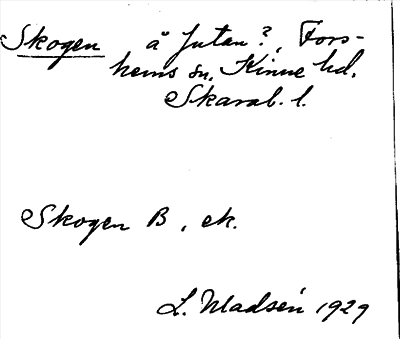 Skogen å Jutan?, Fors-
hems sn, Kinne hd.
Skarab. l.
Skogen B, ek.
L. Madsén 1929